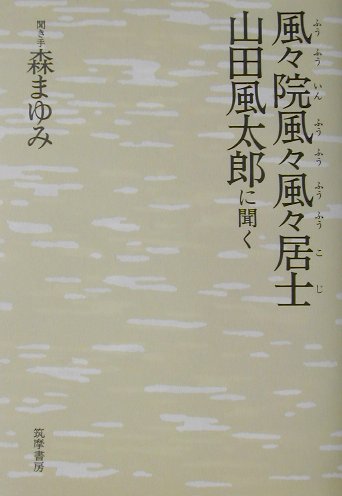 風々院風々風々居士
ふうふういんふうふうふうふうこじ
山田風太郎に聞く
聞き手 森まゆみ
筑摩書房